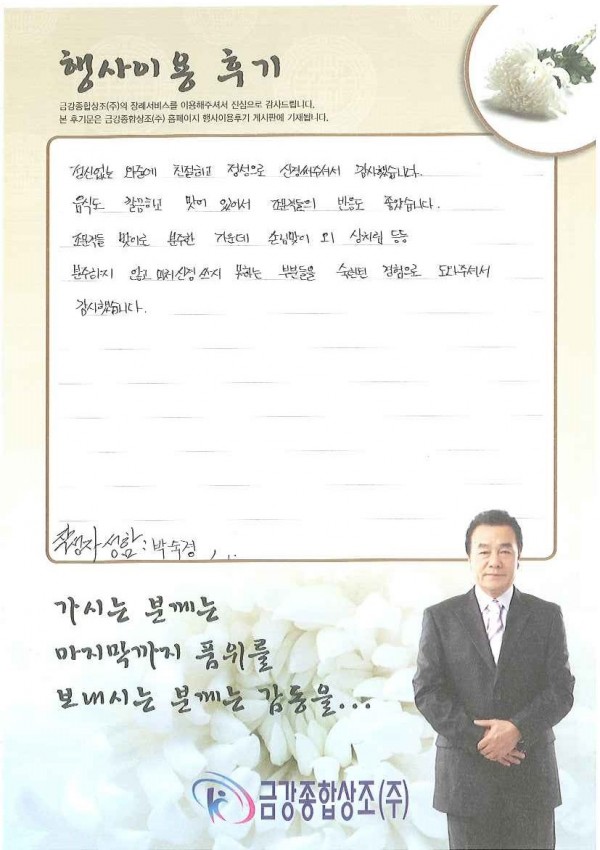 행사이용 후기
금강종합상조(주)의 장례서비스를 이용해주셔서 진심으로 감사드립니다.
본 후기문은 금강종합상조(주) 홈페이지 행사이용후기 게시판에 기재됩니다.
정신없는 와중에 친절하고 정성으로 신경써주셔서 감사했습니다.
음식도 깔끔하고 맛이 있어서 조문객들의 반응도 좋았습니다.
조문객들 맞이로 분주한 가운데 손님맞이 외 상차림 등등
분수하지 않고 미처 신경 쓰지 못하는 부분들을 숙련된 경험으로 도와주셔서
감사했습니다.
작성자 성함 : 박숙경
가시는 분께는
마지막까지 품위를
보내시는 분께는 감동을...
금강종합상조(주)